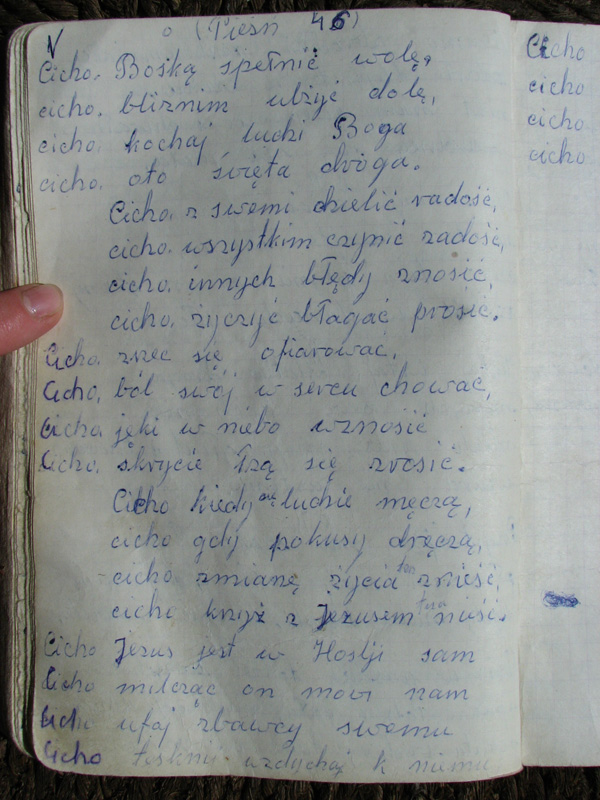 (Pieśń 46)
Cicho. Boską spełnić wolę,
cicho. bliźnim ulżyć dolę,
cicho. kochaj ludzi Boga
cicho. oto święta droga.
Cicho. z swemi dzielić radość,
cicho. wszystkim czynić zadość,
cicho. innych błędy znosić,
cicho. życzyć błagać prosić.
Cicho. się ofiarować.
Cicho. ból swój w sercu chować,
Cicho jęki w niebo wznosić
Cicho. skrycie łzą się zrosić.
Cicho kiedy ludzie męczą,
cicho gdy pokusy dręczą,
cicho zmianę życia znieść,
cicho krzyż z Jezusem nieść.
Cicho Jezus jest w Hostji sam
Cicho milcząc on mówi nam
Cicho ufaj zbawcy swemu
Cicho wzdychaj k niemu
Cicho
cicho
cicho
cicho